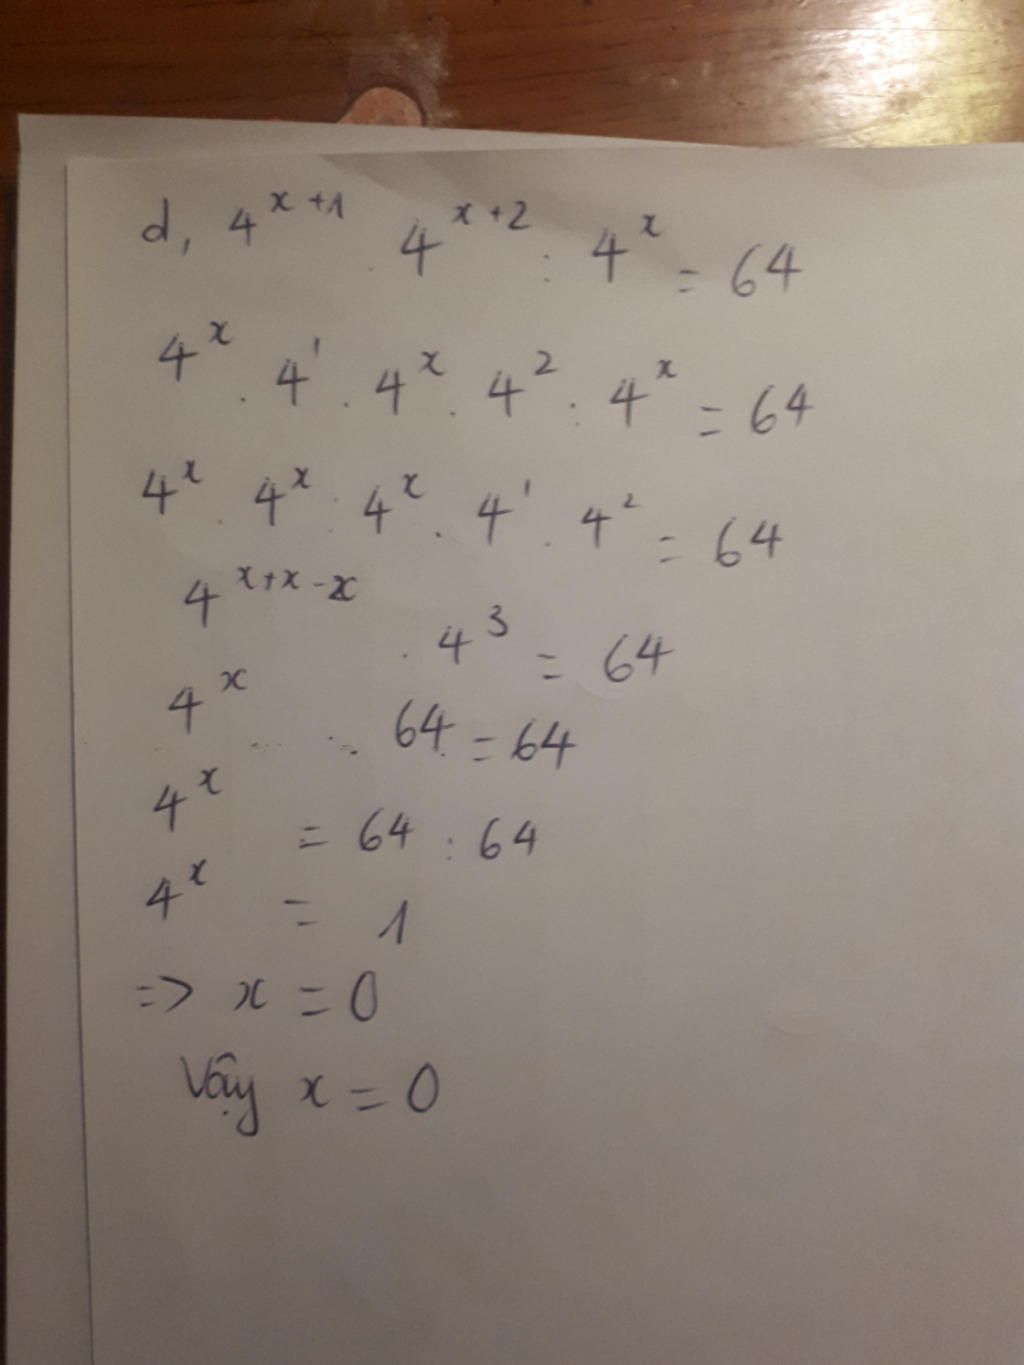 d, 4^{x+1} . 4^{x+2} : 4^x = 64
4^x . 4^1 . 4^x . 4^2 : 4^x = 64
4^x . 4^x : 4^x . 4^1 . 4^2 = 64
4^{x+x-x} . 4^3 = 64
4^x . 64 = 64
4^x = 64 : 64
4^x = 1
=> x = 0
Vậy x = 0